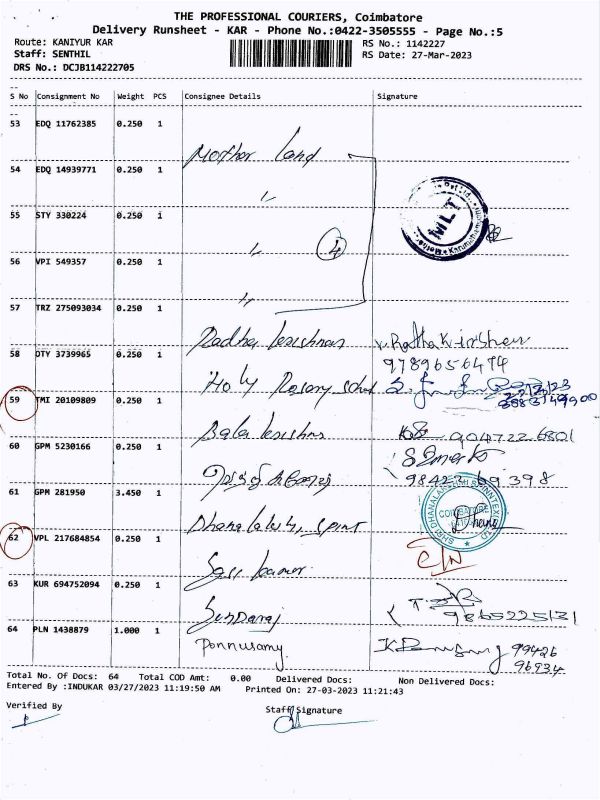 THE PROFESSIONAL COURIERS, Coimbatore
Delivery Runsheet - KAR - Phone No.:0422-3505555 - Page No.:5
Route: KANIYUR KAR
RS No.: 1142227
Staff: SENTHIL
RS Date: 27-Mar-2023
DRS No.: DCJB114222705
S No Consignment No Weight PCS Consignee Details Signature
53 EDQ 11762385 0.250 1
Mother Land
54 EDQ 14939771 0.250 1
"
MLT
55 STY 330224 0.250 1
" 4
56 VPI 549357 0.250 1
"
57 TRZ 275093034 0.250 1
Radha krishnan V. Rathakrishnan
9789656474
58 DTY 3739965 0.250 1
Holy Rosary school
59 TMI 20109809 0.250 1
Bala krishna 9047226801
60 GPM 5230166 0.250 1
9842369398
61 GPM 281950 3.450 1
Dhana lakshmi spint
SHRI DHANALAKSHMI SPINNTEX
COIMBATORE
62 VPL 217684854 0.250 1
Sasi kumar C/N
63 KUR 694752094 0.250 1
Sundaraj 9865225131
64 PLN 1438879 1.000 1
Ponnusamy 99426
96934
Total No. Of Docs: 64 Total COD Amt: 0.00 Delivered Docs: Non Delivered Docs:
Entered By :INDUKAR 03/27/2023 11:19:50 AM Printed On: 27-03-2023 11:21:43
Verified By
Staff Signature